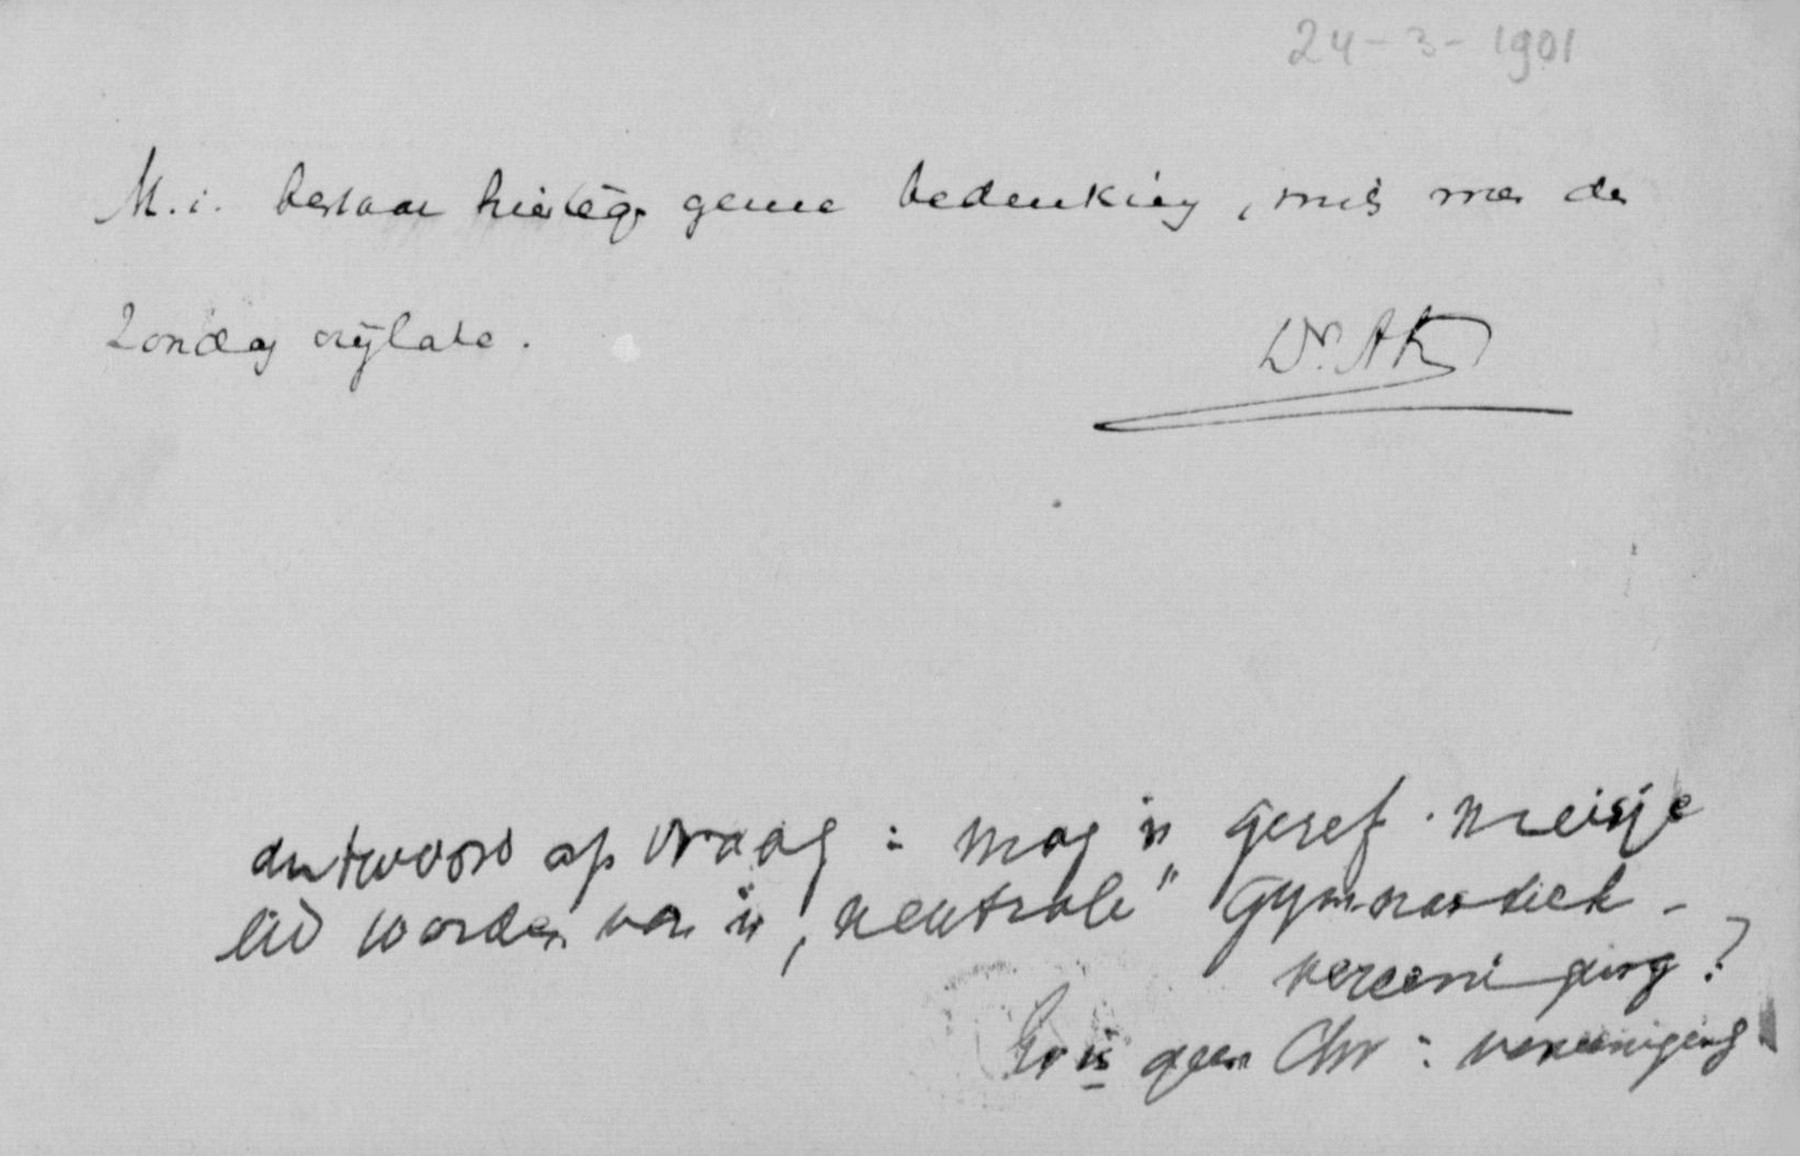 24-3-1901
M.i. bestaan hiertegen geene bedenking, mits men den
Zondag vrijlate.
Dr. AK
antwoord op vraag: mag 'n geref. meisje
lid worden van 'n „neutrale" gymnastiek-
vereeniging?
Er is geen Chr: vereeniging